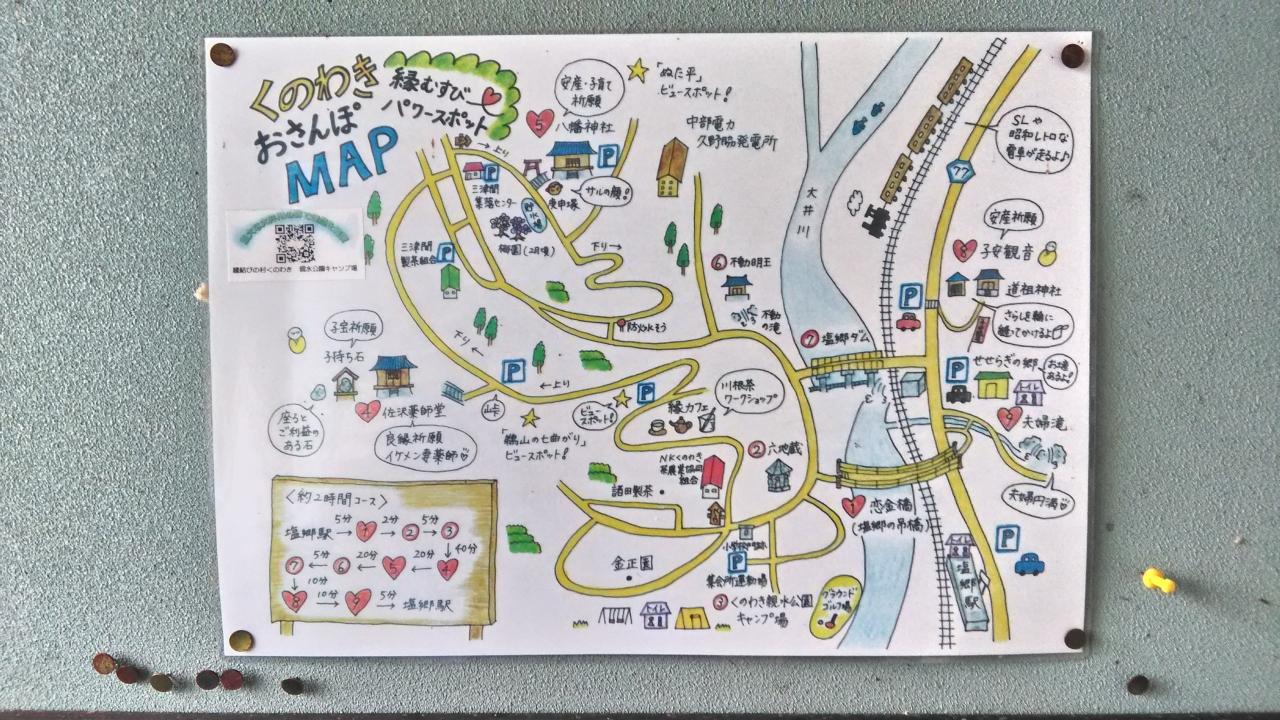 くのわき
おさんぽ
MAP
縁むすび
パワースポット
安産・子育て
祈願
5
八幡神社
P
「ぬた平」
ビュースポット!
中部電力
久野脇発電所
→上り
三津間
集落センター
P
貯水場
庚申塚
サルの顔!
梅園(2月頃)
下り→
三津間
製茶組合
P
縁結びの村くのわき 親水公園キャンプ場
大井川
SLや
昭和レトロな
電車が走るよ♪
77
安産祈願
8
子安観音
道祖神社
P
さらしを輪に
縫ってかけるよ
6
不動明王
不動
の滝
防火水そう
7
塩郷ダム
P
せせらぎの郷
お塩
あるよ!
トイレ
9
夫婦滝
夫婦円満
子宝祈願
子持ち石
座ると
ご利益の
ある石
4
佐沢薬師堂
良縁祈願
イケメン妻薬師
下り←
P
←上り
峠
ビュー
スポット!
P
「鵜山の七曲がり」
ビュースポット!
縁カフェ
川根茶
ワークショップ
2
六地蔵
NKくのわき
茶農業協同
組合
諸田製茶
1
恋金橋
(塩郷の吊橋)
P
トイレ
塩郷駅
金正園
P
集会所運動場
3
くのわき親水公園
キャンプ場
トイレ
グラウンド
ゴルフ場
〈約2時間コース〉
塩郷駅 5分→ 1 2分→ 2 5分→ 3
↓40分
7 ←5分 6 ←20分 5 ←20分 4
↓10分
8 10分→ 9 5分→ 塩郷駅